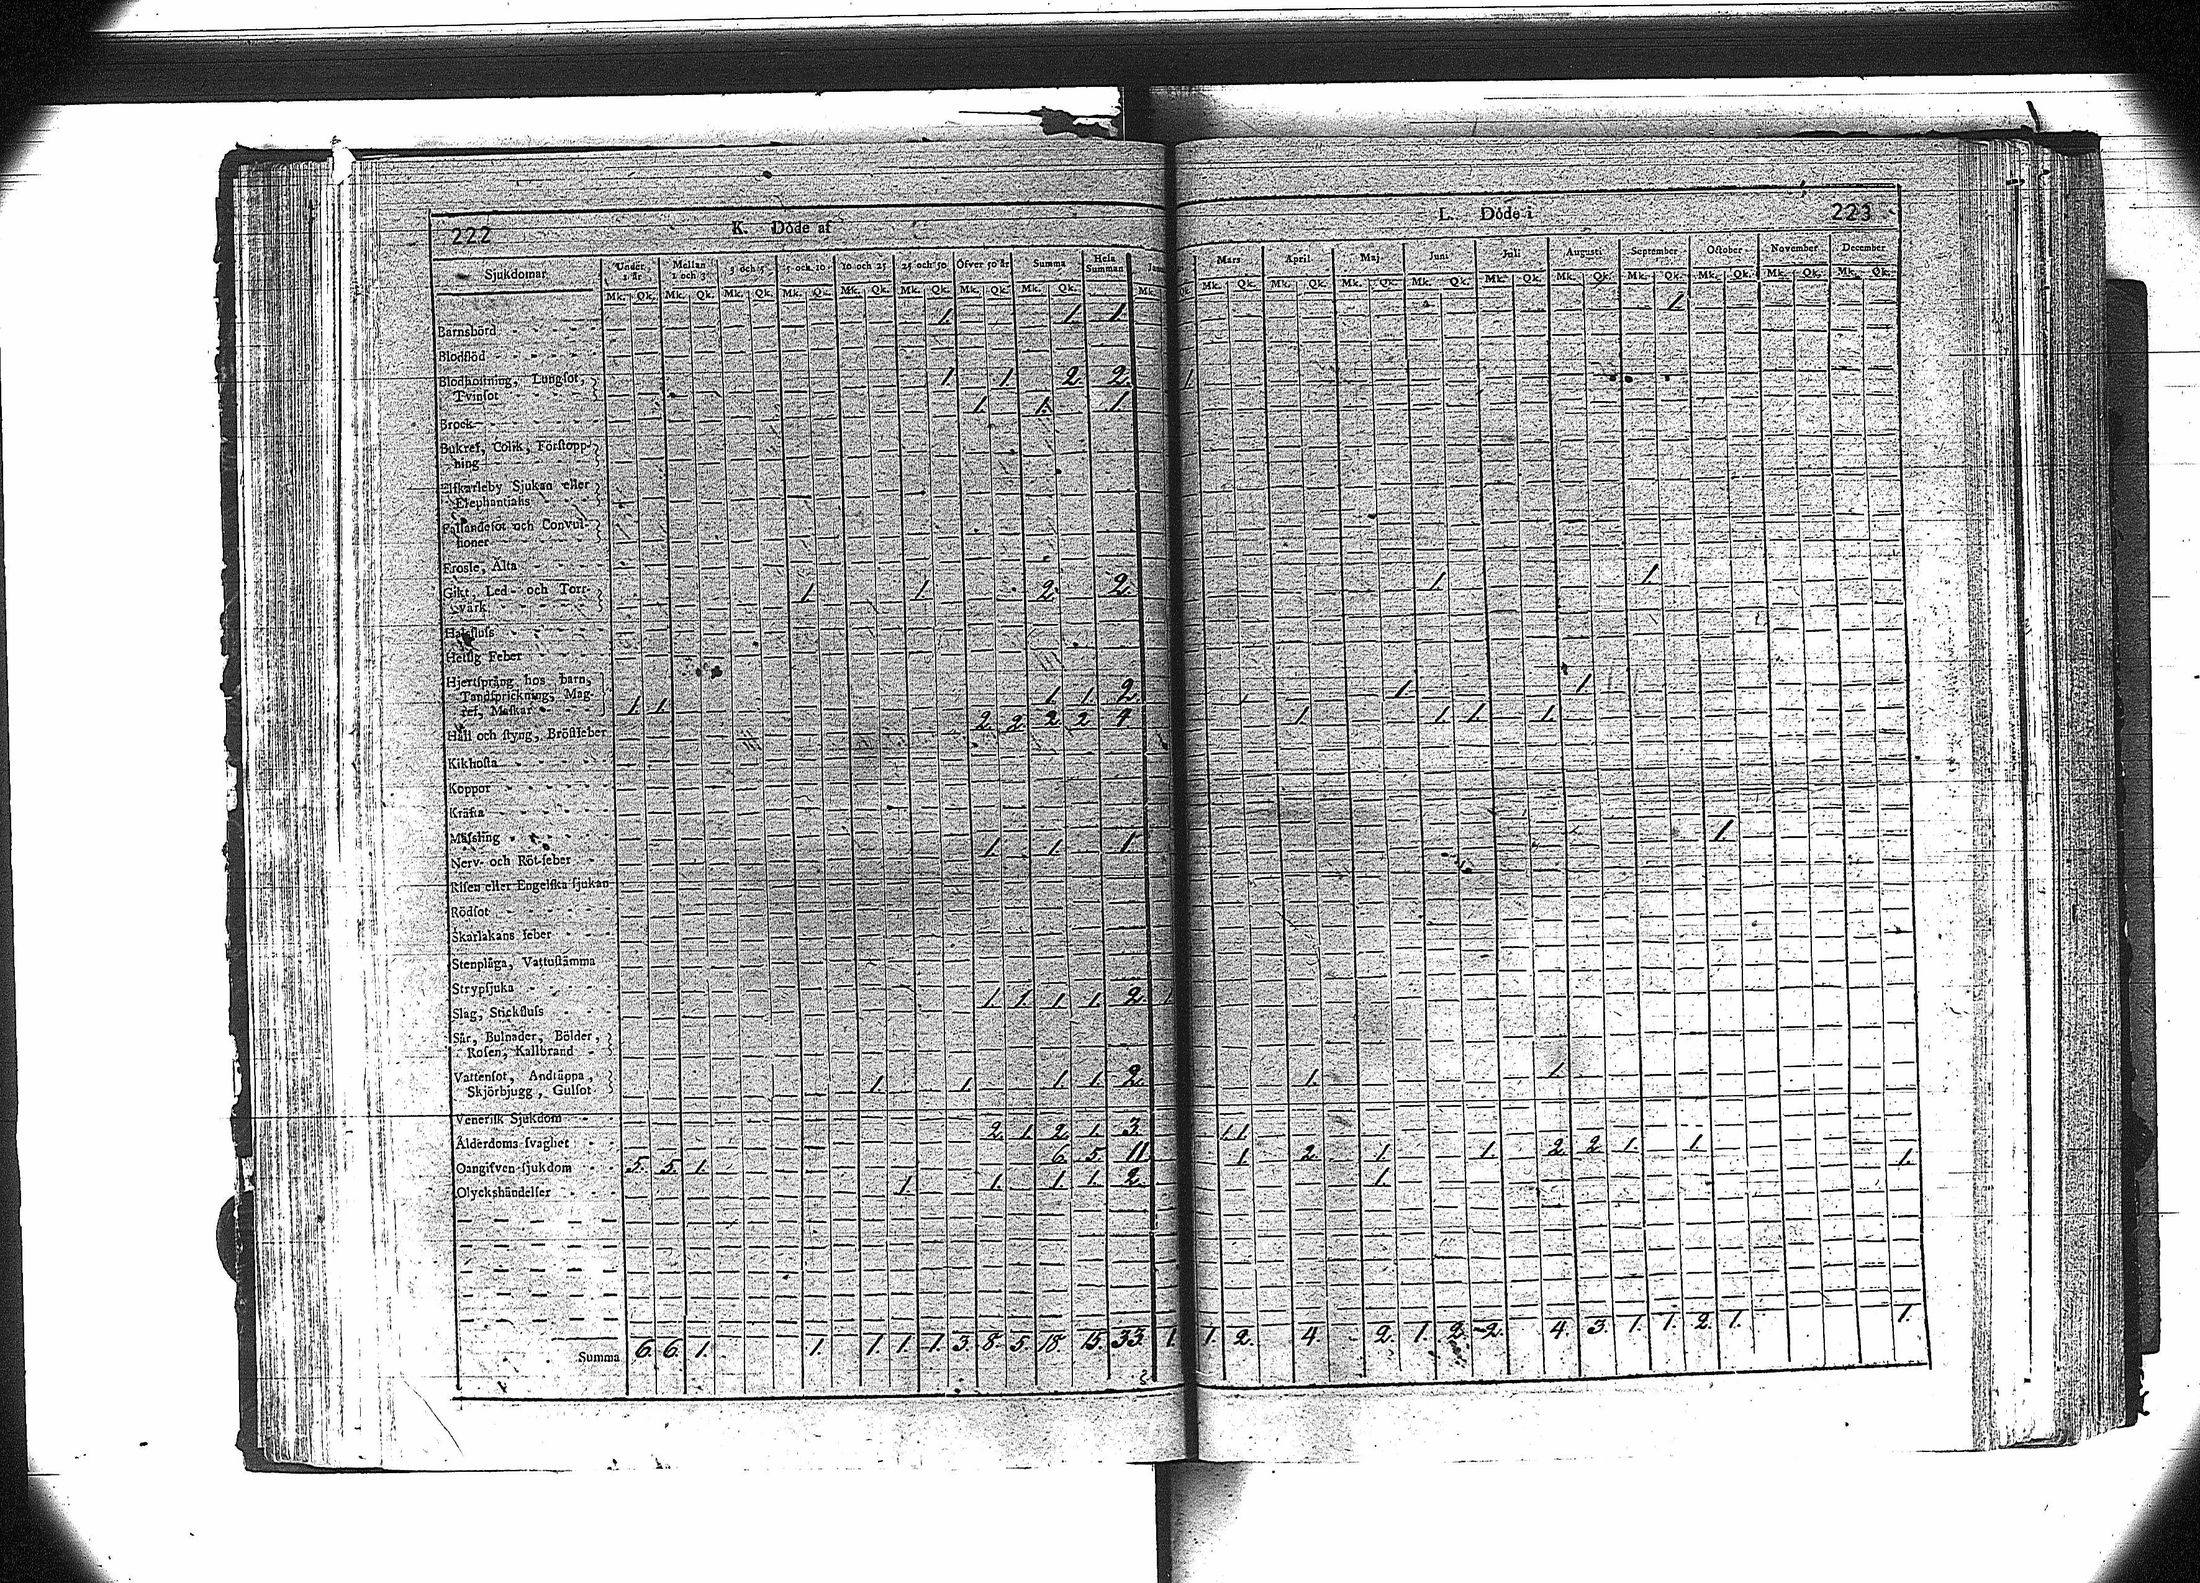 222 K. Döde af
L. Döde i 223
Sjukdomar Under 1 år Mellan 1 och 3 3 och 5 5 och 10 10 och 25 25 och 50 Öfver 50 år Summa Hela Summan
Mars April Maj Juni Juli Augusti September October November December
Mk. Qk. Mk. Qk. Mk. Qk. Mk. Qk. Mk. Qk. Mk. Qk. Mk. Qk. Mk. Qk. Mk.
Qk. Mk. Qk. Mk. Qk. Mk. Qk. Mk. Qk. Mk. Qk. Mk. Qk. Mk. Qk. Mk. Qk. Mk. Qk. Mk. Qk.
Barnsbörd 1. 1. 1. 1.
Blodflöd
Blodhostning, Lungsot,
Tvinsot 1. 1. 2. 2. 1.
Brock 1. 1. 1
Bukref, Colik, Förstopp-
ning
Elfkarleby Sjukan eller
Elephantiasis
Fallandesot och Convul-
sioner
Frossa, Älta
Gikt, Led- och Torr-
värk 1. 1. 2. 2. 1. 1.
Halsfluss
Hetsig Feber
Hjertsprång hos barn,
Tandsprickning, Mag-
ref, Maskar 1. 1. 1. 1. 2. 1. 1.
Håll och styng, Bröstfeber 2. 2. 2. 2. 4. 1. 1. 1. 1.
Kikhosta
Koppor
Kräfta
Mässling
Nerv- och Röt-feber 1. 1. 1. 1.
Risen eller Engelska sjukan
Rödsot
Skarlakans feber
Stenplåga, Vattustämma
Strypsjuka
Slag, Stickfluss 1. 1. 1. 1. 2. 1.
Sår, Bulnader, Bölder,
Rosen, Kallbrand
Vattensot, Andtäppa,
Skjörbjugg, Gulsot 1. 1. 1. 1. 2. 1. 1.
Venerisk Sjukdom
Ålderdoms svaghet 2. 1. 2. 1. 3. 1. 1.
Oangifven sjukdom 5. 5. 1. 6. 5. 11. 1. 2. 1. 1. 2. 2. 1. 1. 1.
Olyckshändelser 1. 1. 1. 1. 2. 1.
Summa 6. 6. 1. 1. 1. 1. 1. 3. 8. 5. 18. 15. 33. 1. 1. 2. 4. 2. 1. 2. 2. 4. 3. 1. 1. 2. 1. 1.